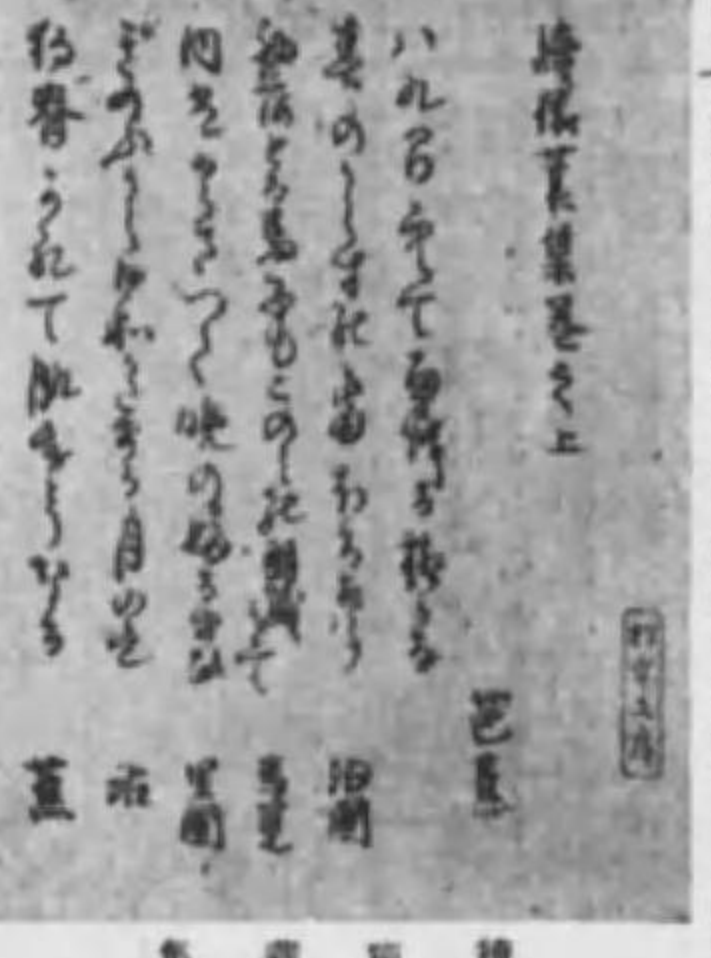 續猿蓑集巻之上
芭蕉
八九間空て雨降る柳かな
春のからすの畠ほる聲 沾圃
初荷とる馬子もこのみの羽織きて 馬莧
内はとさつく晩のふるまひ 里圃
きのふから日和かたまる月の色 沾
狗脊かれて肌寒うなる 蕉